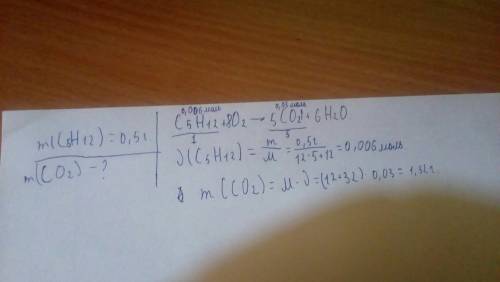 m(C5H12) = 0,5г
m(CO2) - ?
0,006 моль 0,03 моль
C5H12 + 8O2 → 5CO2 + 6H2O
1 5
ν(C5H12) = m/M = 0,5г/12·5+12 = 0,006 моль
m(CO2) = M·ν = (12+32)·0,03 = 1,32г